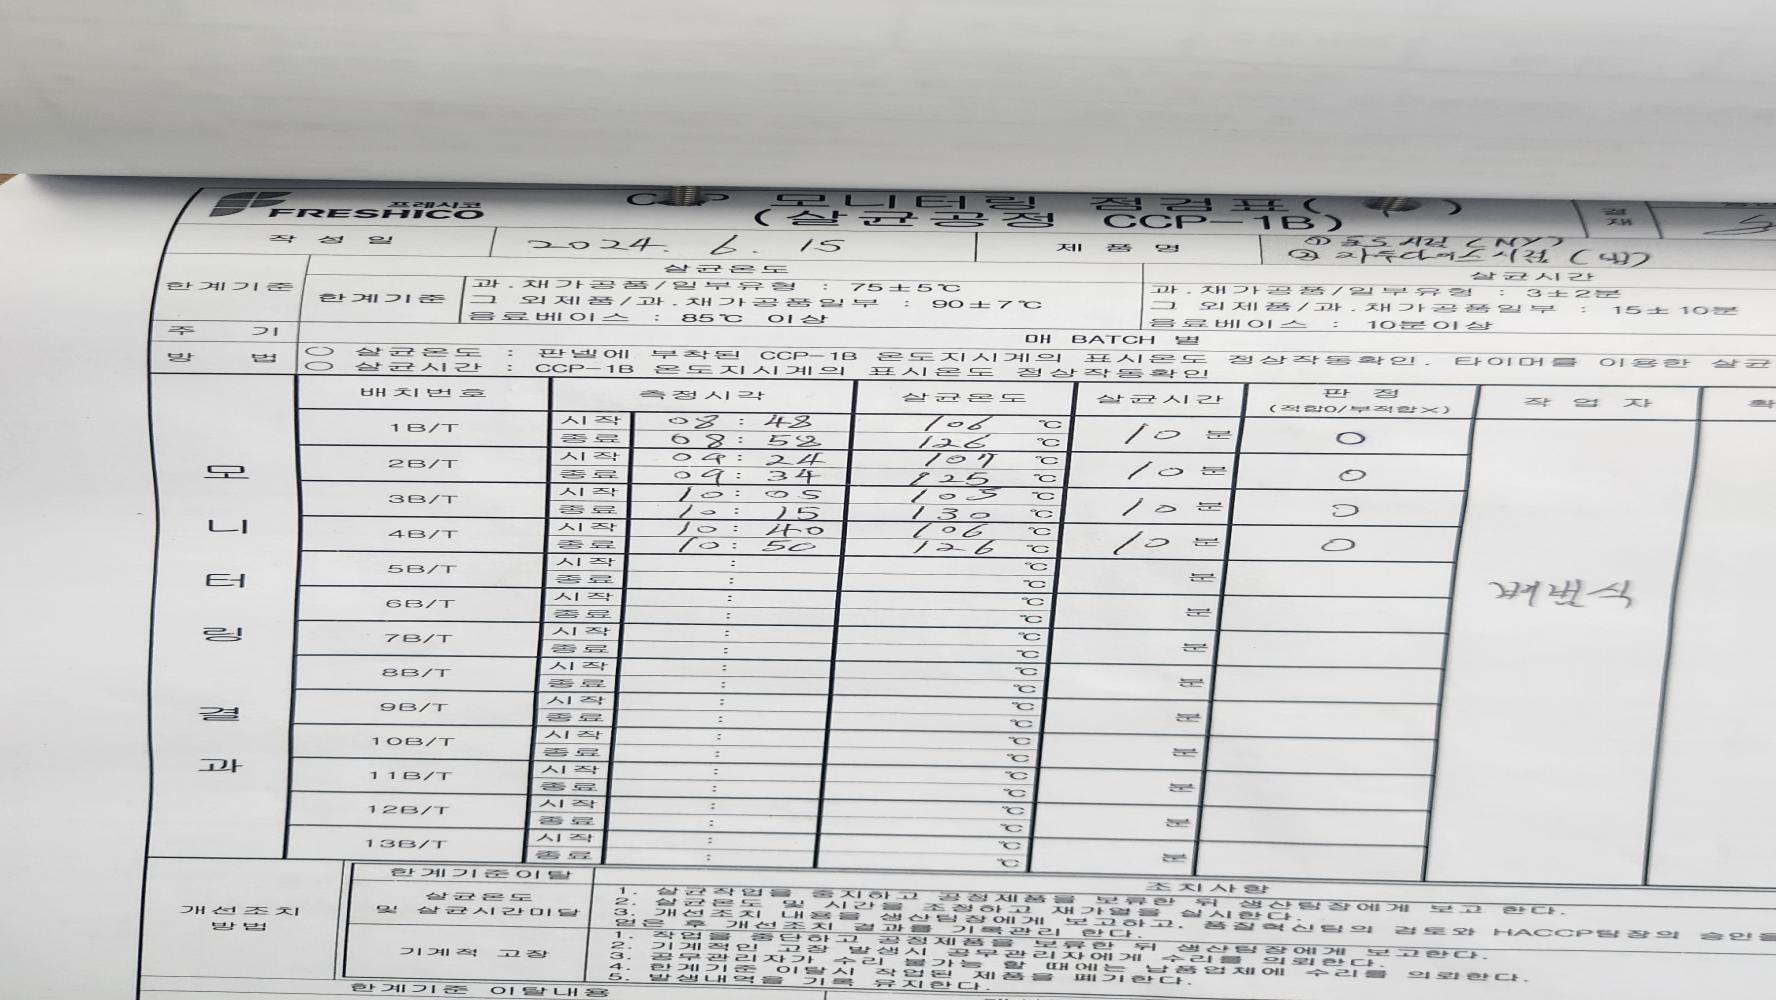 프레시코
FRESHICO
CCP 모니터링 점검표( )
(살균공정 CCP-1B)
결재
작 성 일 2024. 6. 15 제 품 명
한계기준 한계기준 살균온도 살균시간
과.채가공품/일부유형 : 75±5℃ 과.채가공품/일부유형 : 3±2분
그 외제품/과.채가공품일부 : 90±7℃ 그 외제품/과.채가공품일부 : 15±10분
음료베이스 : 85℃ 이상 음료베이스 : 10분이상
주 기 매 BATCH 별
방 법 ○ 살균온도 : 판넬에 부착된 CCP-1B 온도지시계의 표시온도 정상작동확인. 타이머를 이용한 살균
○ 살균시간 : CCP-1B 온도지시계의 표시온도 정상작동확인
모니터링결과
배치번호 측정시각 살균온도 살균시간 판 정 (적합O/부적합×) 작 업 자 확
1B/T 시작 08 : 48 106 ℃ 10 분 O
종료 08 : 58 126 ℃
2B/T 시작 09 : 24 107 ℃ 10 분 O
종료 09 : 34 125 ℃
3B/T 시작 10 : 05 105 ℃ 10 분 O
종료 10 : 15 130 ℃
4B/T 시작 10 : 40 106 ℃ 10 분 O
종료 10 : 50 126 ℃
5B/T 시작 : ℃ 분
종료 : ℃
6B/T 시작 : ℃ 분
종료 : ℃
7B/T 시작 : ℃ 분
종료 : ℃
8B/T 시작 : ℃ 분
종료 : ℃
9B/T 시작 : ℃ 분
종료 : ℃
10B/T 시작 : ℃ 분
종료 : ℃
11B/T 시작 : ℃ 분
종료 : ℃
12B/T 시작 : ℃ 분
종료 : ℃
13B/T 시작 : ℃ 분
종료 : ℃
개선조치 방법
한계기준이탈 조치사항
살균온도 및 살균시간미달
1. 살균작업을 중지하고 공정제품을 보류한 뒤 생산팀장에게 보고 한다.
2. 살균온도 및 시간을 조정하고 재가열을 실시한다.
3. 개선조치 내용을 생산팀장에게 보고하고, 품질혁신팀의 검토와 HACCP팀장의 승인을
얻은 후 개선조치 결과를 기록관리 한다.
기계적 고장
1. 작업을 중단하고 공정제품을 보류한 뒤 생산팀장에게 보고한다.
2. 기계적인 고장 발생시 공무관리자에게 수리를 의뢰한다.
3. 공무관리자가 수리 불가능 할 때에는 납품업체에 수리를 의뢰한다.
4. 한계기준 이탈시 작업된 제품을 폐기한다.
5. 발생내역을 기록 유지한다.
한계기준 이탈내용